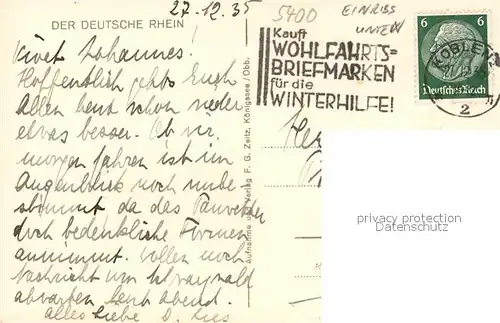 27.12.35
5400
EINRISS
UNTEN
DER DEUTSCHE RHEIN
Kauft
WOHLFAHRTS=
BRIEFMARKEN
für die
WINTERHILFE!
6 6
Deutsches Reich
KOBLENZ
2
Johannes.
Hoffentlich gehts Euch
Allen heut schon wieder
etwas besser. Ob wir
morgen fahren ist im
Augenblick noch unbe=
stimmt da das Tauwetter
doch bedenkliche Formen
annimmt. Wollen noch
Nachricht um
abwarten heut abend.
Alles Liebe D. Lies
Aufnahme und Verlag F. G. Zeitz, Königssee/Obb.
privacy protection
Datenschutz